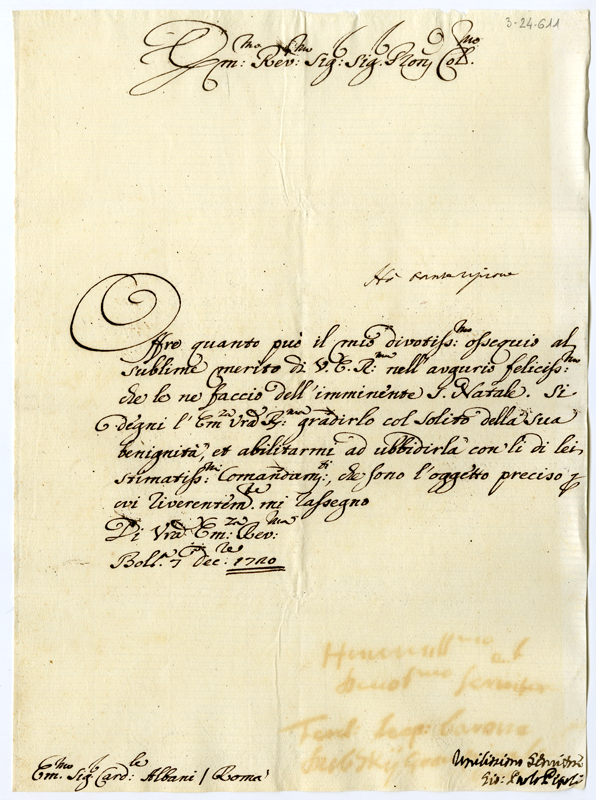 3-24-611
Em:mo Rev:mo Sig: Sig: Pron Col.mo
Offro quanto può il mio divotiss:mo ossequio al
sublime merito di V. E. R:ma nell'augurio feliciss:mo
che le ne faccio dell'imminente S. Natale. Si
degni l'Em:za Vrã R:ma gradirlo col solito della sua
benignità, et abilitarmi ad ubbidirla con li di lei
stimatiss:mi Comandam:ti, che sono l'oggetto preciso
cui riverentem:te mi rassegno
Di Vrã Em:za Rev:ma
Bol.a 7 Dec:re 1720
Em:mo Sig Card:le Albani / Roma
Umilissimo Servitre
Gio: Paolo Pepoli